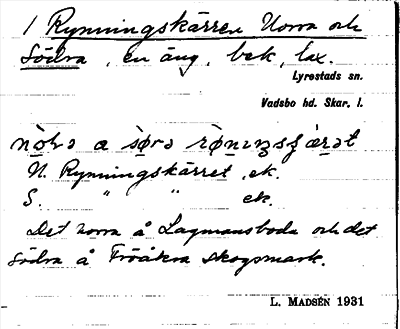 1 Rynningskärren Norra och
Södra, en äng, bek, lax.
Lyrestads sn.
Vadsbo hd. Skar. l.
N. Rynningskärret, ek.
S. " " ek.
Det norra å Lagmansboda och det
södra å Fröåkra skogsmark.
L. MADSÉN 1931